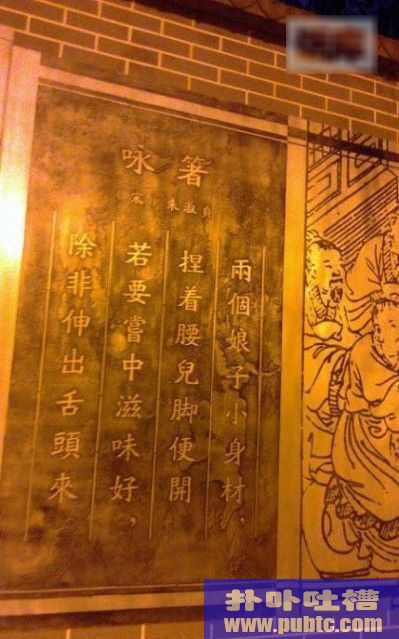 咏箸
宋 朱淑貞
兩個娘子小身材，
捏着腰兒脚便開
若要嘗中滋味好，
除非伸出舌頭來
扑卟吐槽
www.pubtc.com